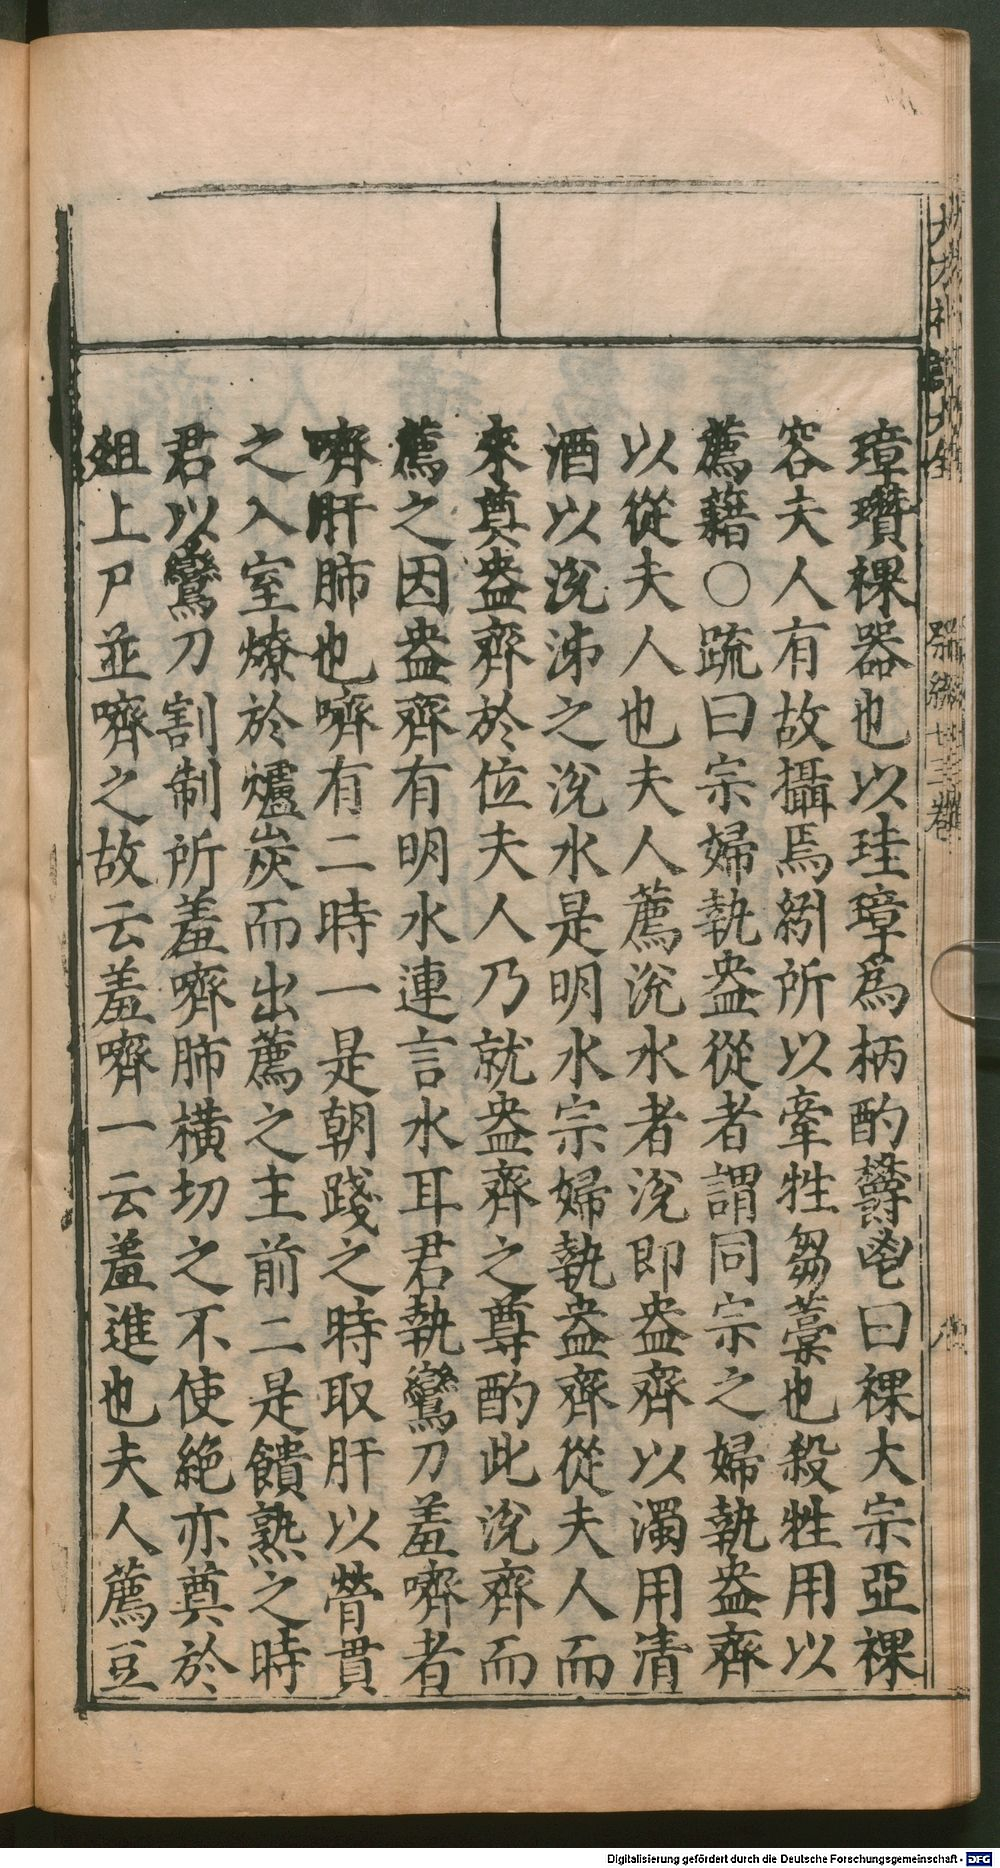 璋瓚祼器也以珪璋爲柄酌鬱鬯曰祼大宗亞祼
容夫人有故攝焉紖所以牽牲芻藁也殺牲用以
薦藉○疏曰宗婦執盎從者謂同宗之婦執盎齊
以從夫人也夫人薦涗水者涗即盎齊以濁用清
酒以涗泲之涗水是明水宗婦執盎齊從夫人而
來奠盎齊於位夫人乃就盎齊之尊酌此涗齊而
薦之因盎齊有明水連言水耳君執鸞刀羞嚌者
嚌肝肺也嚌有二時一是朝踐之時取肝以膋貫
之入室燎於爐炭而出薦之主前二是饋熟之時
君以鸞刀割制所羞嚌肺橫切之不使絶亦奠於
俎上尸並嚌之故云羞嚌一云羞進也夫人薦豆
卷
Digitalisierung gefördert durch die Deutsche Forschungsgemeinschaft - DFG